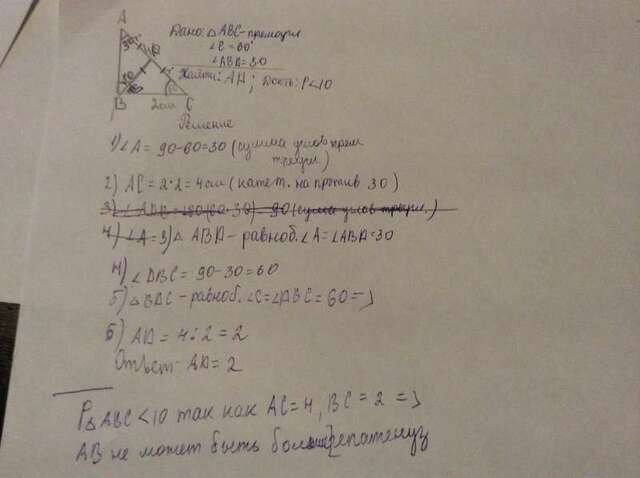 A
30
D
60
B
2см
C
Дано: △ABC - прямоуг.
∠C = 60°
∠ABD = 30
Найти: AD; Док-ть: P<10
Решение
1) ∠A = 90-60=30 (сумма углов прям. треуг.)
2) AC = 2·2 = 4см (катет. на против 30)
4) ∠A= 3) △ ABD - равноб. ∠A = ∠ABD=30
4) ∠DBC = 90-30=60
5) △BDC - равноб. ∠C=∠ABC = 60 =>
6) AD = 4:2 = 2
Ответ: AD = 2
P△ABC <10 так как AC=4, BC = 2 =>
AB не может быть больше гепатенуз